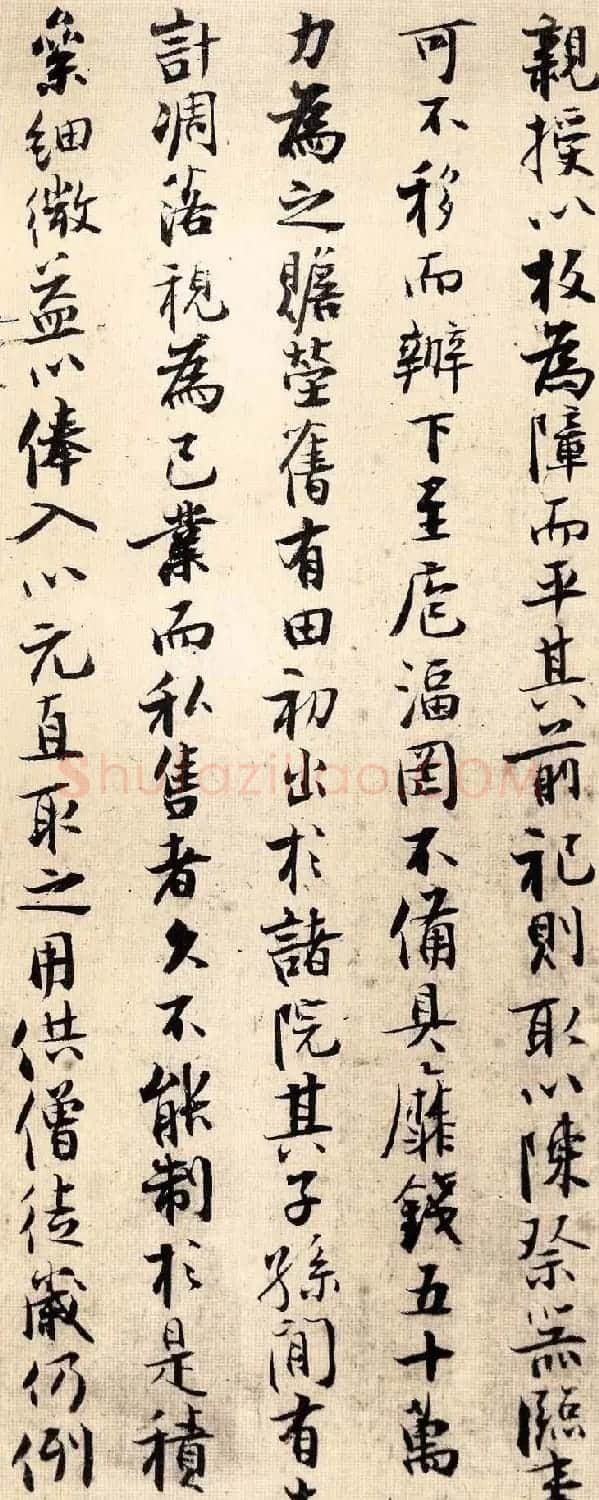 親授以板為障而平其前祀則取以陳祭器臨
可不移而辦下至庖湢罔不備具靡錢五十萬
力為之贍塋舊有田初出於諸院其子孫間有
計凋落視為己業而私售者久不能制於是積
絫細微益以俸入以元直取之用供僧徒歲仍例
Shufaziliao.COM